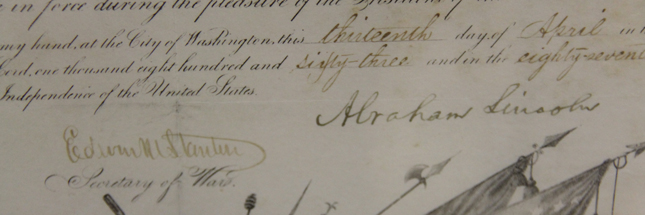 in force during the pleasure of the
my hand, at the City of Washington, this thirteenth day of April in t
ord, one thousand eight hundred and sixty-three and in the eighty-sevent
Independence of the United States.
Abraham Lincoln
Edwin M Stanton
Secretary of War.